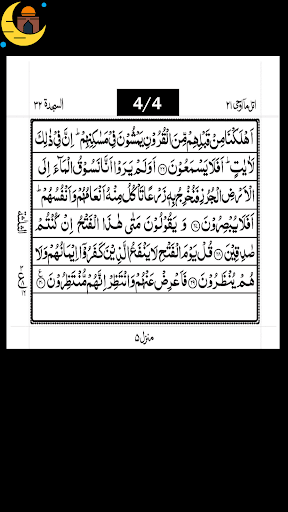 اتل ما اوحی ۲۱
4/4
السجدة ۳۲
اَهْلَكْنَا مِنْ قَبْلِهِمْ مِّنَ الْقُرُوْنِ يَمْشُوْنَ فِيْ مَسٰكِنِهِمْ ؕ اِنَّ فِيْ ذٰلِكَ
لَاٰيٰتٍ ؕ اَفَلَا يَسْمَعُوْنَ ﴿۲۶﴾ اَوَلَمْ يَرَوْا اَنَّا نَسُوْقُ الْمَآءَ اِلَى
الْاَرْضِ الْجُرُزِ فَنُخْرِجُ بِهٖ زَرْعًا تَاْكُلُ مِنْهُ اَنْعَامُهُمْ وَاَنْفُسُهُمْ ؕ
اَفَلَا يُبْصِرُوْنَ ﴿۲۷﴾ وَ يَقُوْلُوْنَ مَتٰى هٰذَا الْفَتْحُ اِنْ كُنْتُمْ
صٰدِقِيْنَ ﴿۲۸﴾ قُلْ يَوْمَ الْفَتْحِ لَا يَنْفَعُ الَّذِيْنَ كَفَرُوْٓا اِيْمَانُهُمْ وَلَا
هُمْ يُنْظَرُوْنَ ﴿۲۹﴾ فَاَعْرِضْ عَنْهُمْ وَانْتَظِرْ اِنَّهُمْ مُّنْتَظِرُوْنَ ﴿۳۰﴾
منزل ۵